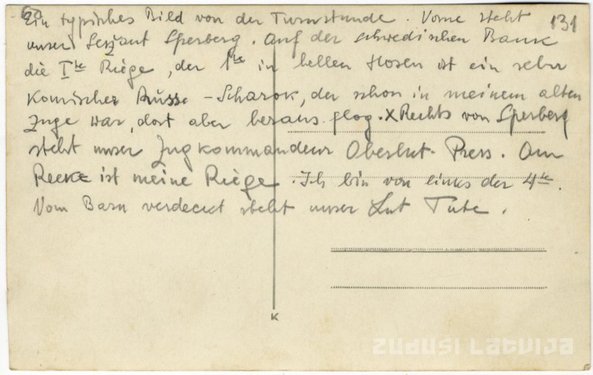 131
Ein typisches Bild von der Turnstunde. Vorne steht
unser Seržant Sperberg. Auf der schwedischen Bank
die Ite Riege, der 1te in hellen Hosen ist ein sehr
komischer Russe - Scharok, der schon in meinem alten
Zuge war, dort aber heraus flog. x Rechts von Sperberg
steht unser Zugkommandeur Oberlut. Press. Am
Recke ist meine Riege. Ich bin von links der 4te.
Vom Barn verdeckt steht unser Lut Tute.
K
ZUDUSI LATVIJA